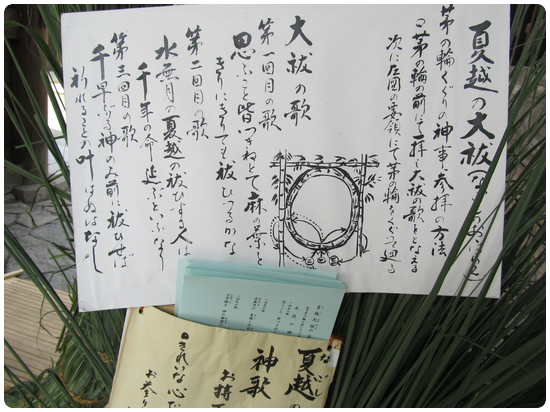 夏越の大祓(なごしのおおはらえ)
茅の輪くぐりの神事参拝の方法
茅の輪の前に一拝、大祓の歌をとなえる
次に左図の要領にて茅の輪をくぐって廻る
大祓の歌
第一回目の歌
思ふこと皆つきねとて麻の葉を
きりにきりても祓ひつるかな
第二回目の歌
水無月の夏越の祓ひする人は
千年の命延ぶといふなり
第三回目の歌
千早ふる神のみ前に祓ひせば
祈れることの叶はぬはなし
夏越の
神歌
お持
きれいな心だ
お参り